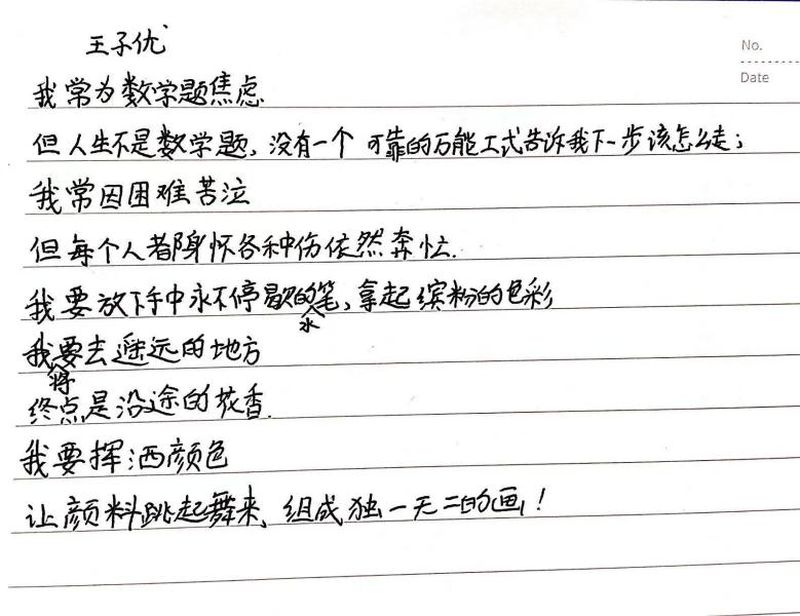 王子优
No.
Date
我常为数学题焦虑.
但人生不是数学题,没有一个 可靠的万能工式告诉我下一步该怎么走;
我常因困难苦泣
但每个人都身怀各种伤依然奔忙.
我要放下手中永不停歇的水笔,拿起缤纷的色彩
我将要去遥远的地方
终点是沿途的花香.
我要挥洒颜色
让颜料跳起舞来、组成独一无二的画!